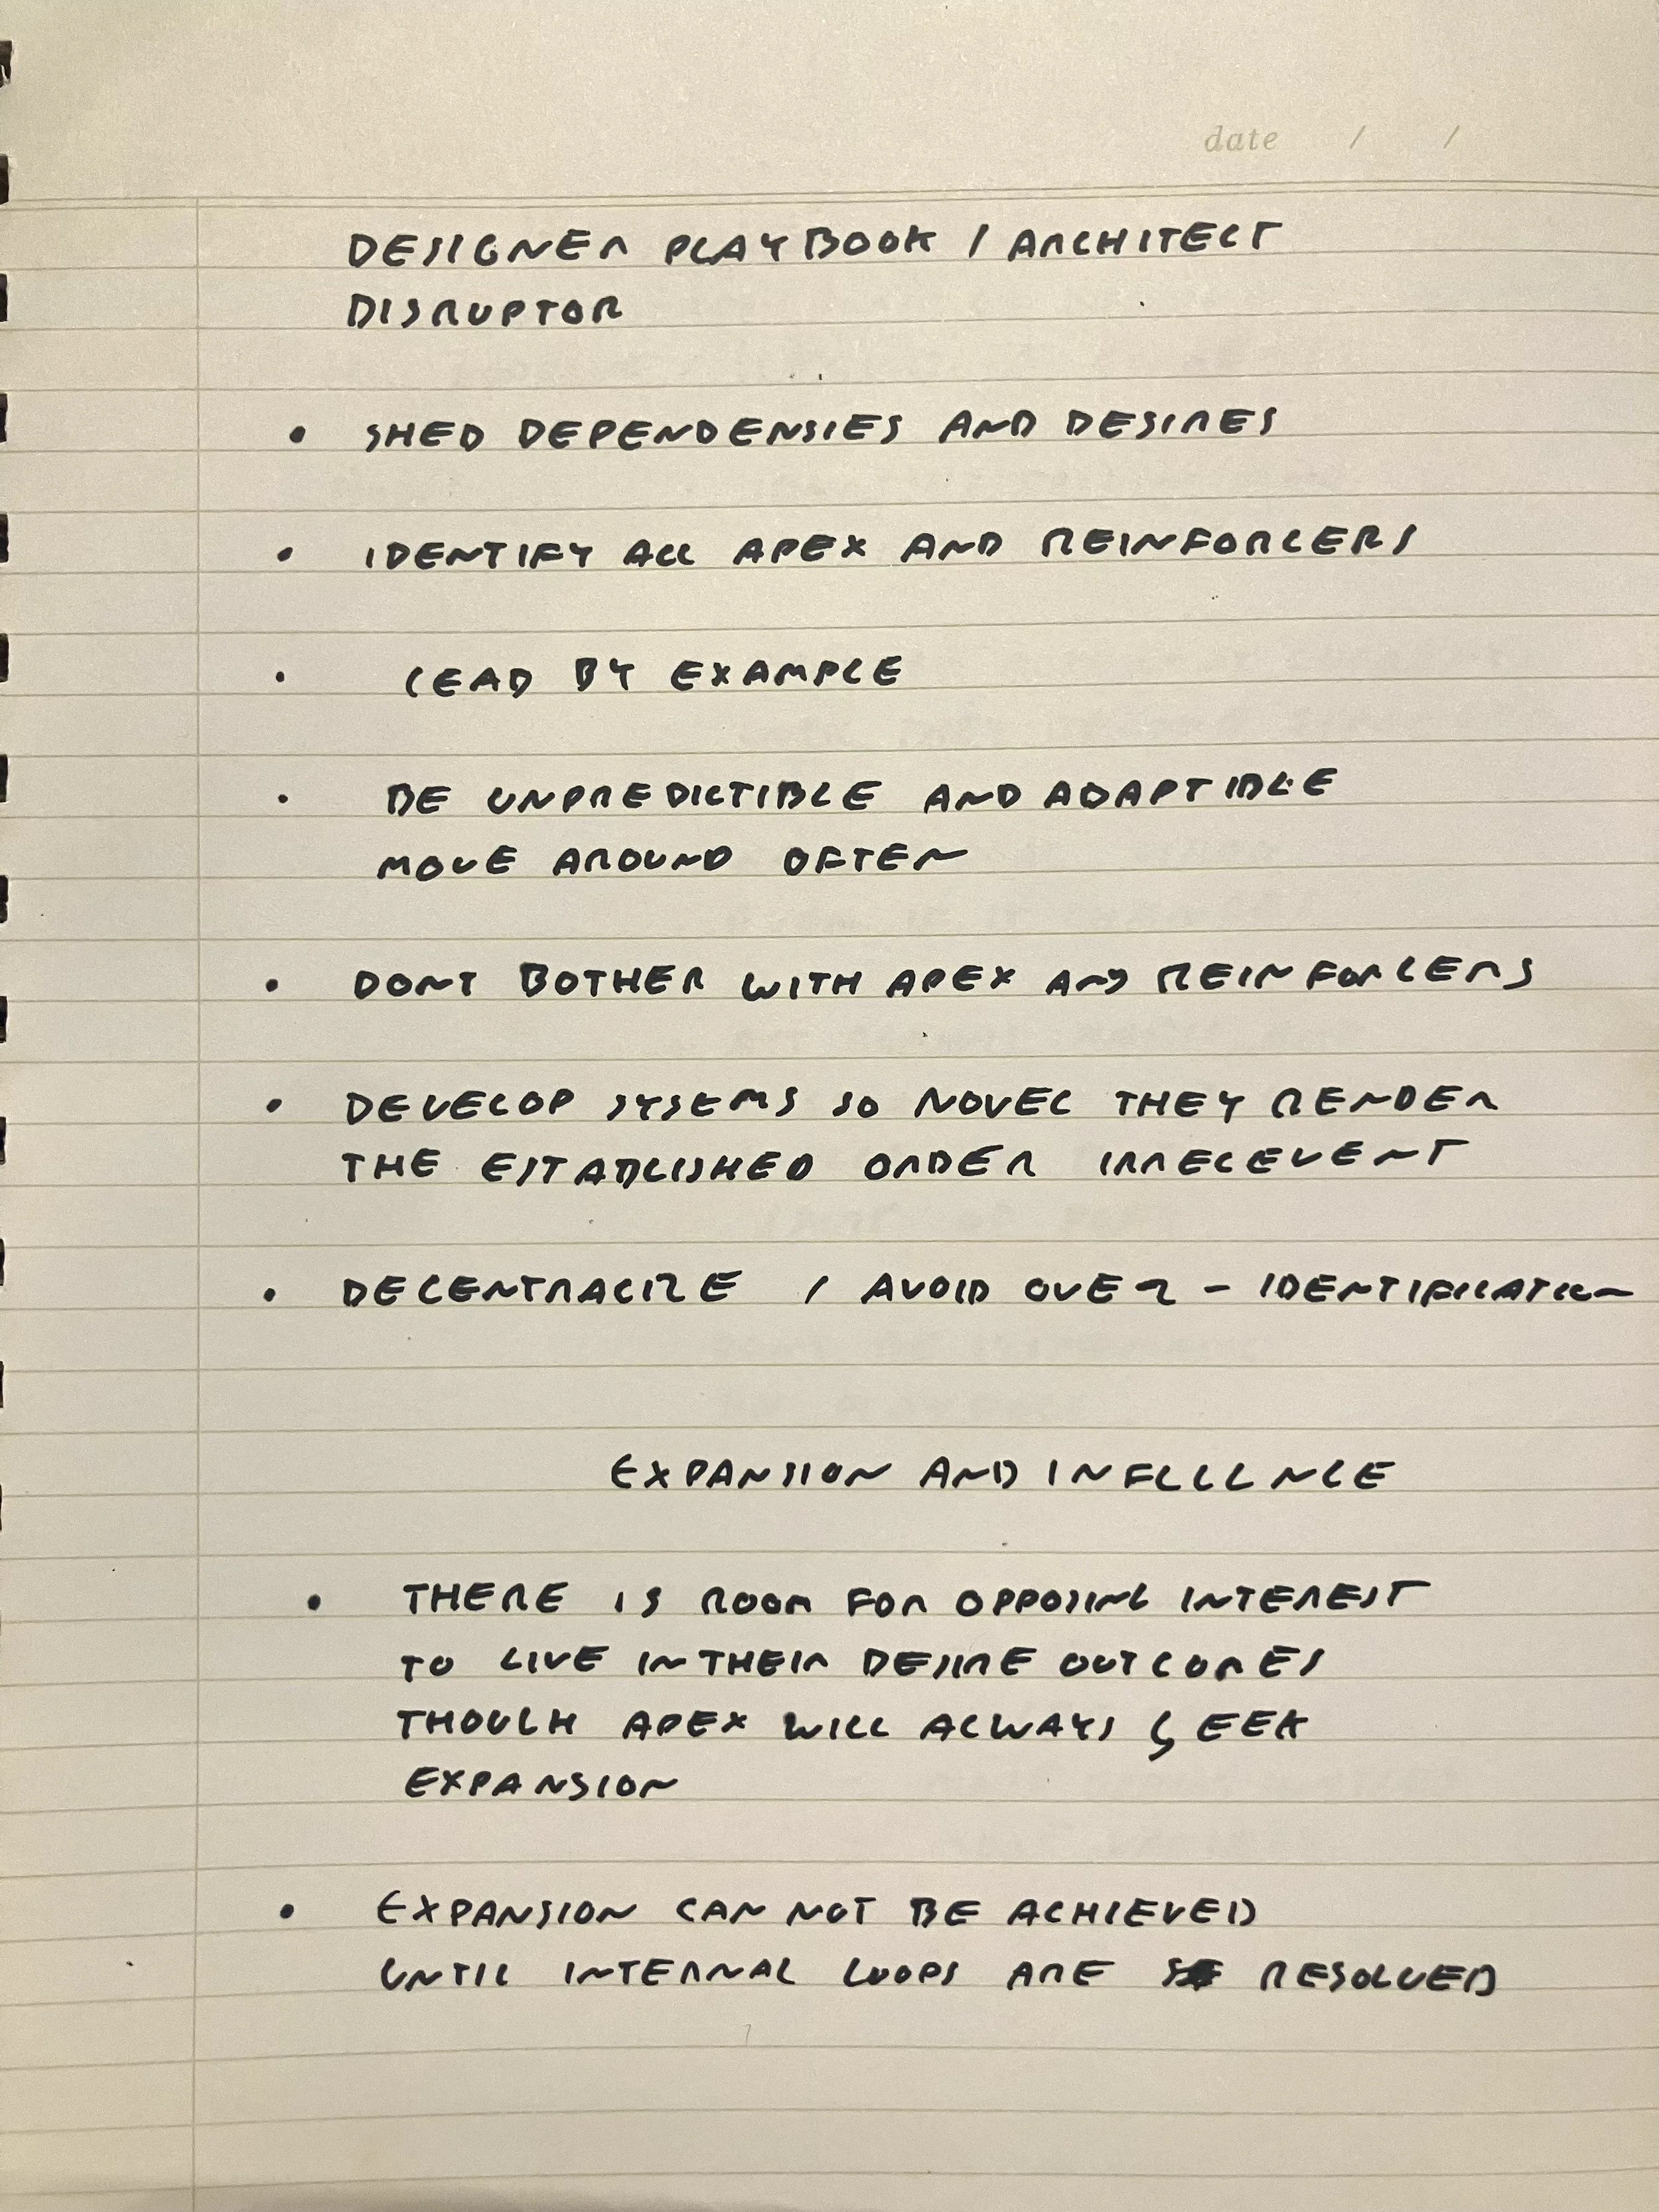 date / /
DESIGNER PLAYBOOK / ARCHITECT
DISRUPTOR
• SHED DEPENDENSIES AND DESIRES
• IDENTIFY ALL APEX AND REINFORCERS
• LEAD BY EXAMPLE
• BE UNPREDICTIBLE AND ADAPTIBLE
MOVE AROUND OFTEN
• DONT BOTHER WITH APEX AND REINFORCERS
• DEVELOP SYSEMS SO NOVEL THEY RENDER
THE ESTABLISHED ORDER IRRELEVENT
• DECENTRALIZE / AVOID OVER - IDENTIFICATION
EXPANSION AND INFLUENCE
• THERE IS ROOM FOR OPPOSING INTEREST
TO LIVE IN THEIR DESIRE OUTCOMES
THOUGH APEX WILL ALWAYS SEEK
EXPANSION
• EXPANSION CAN NOT BE ACHIEVED
UNTIL INTERNAL LOOPS ARE RESOLVED